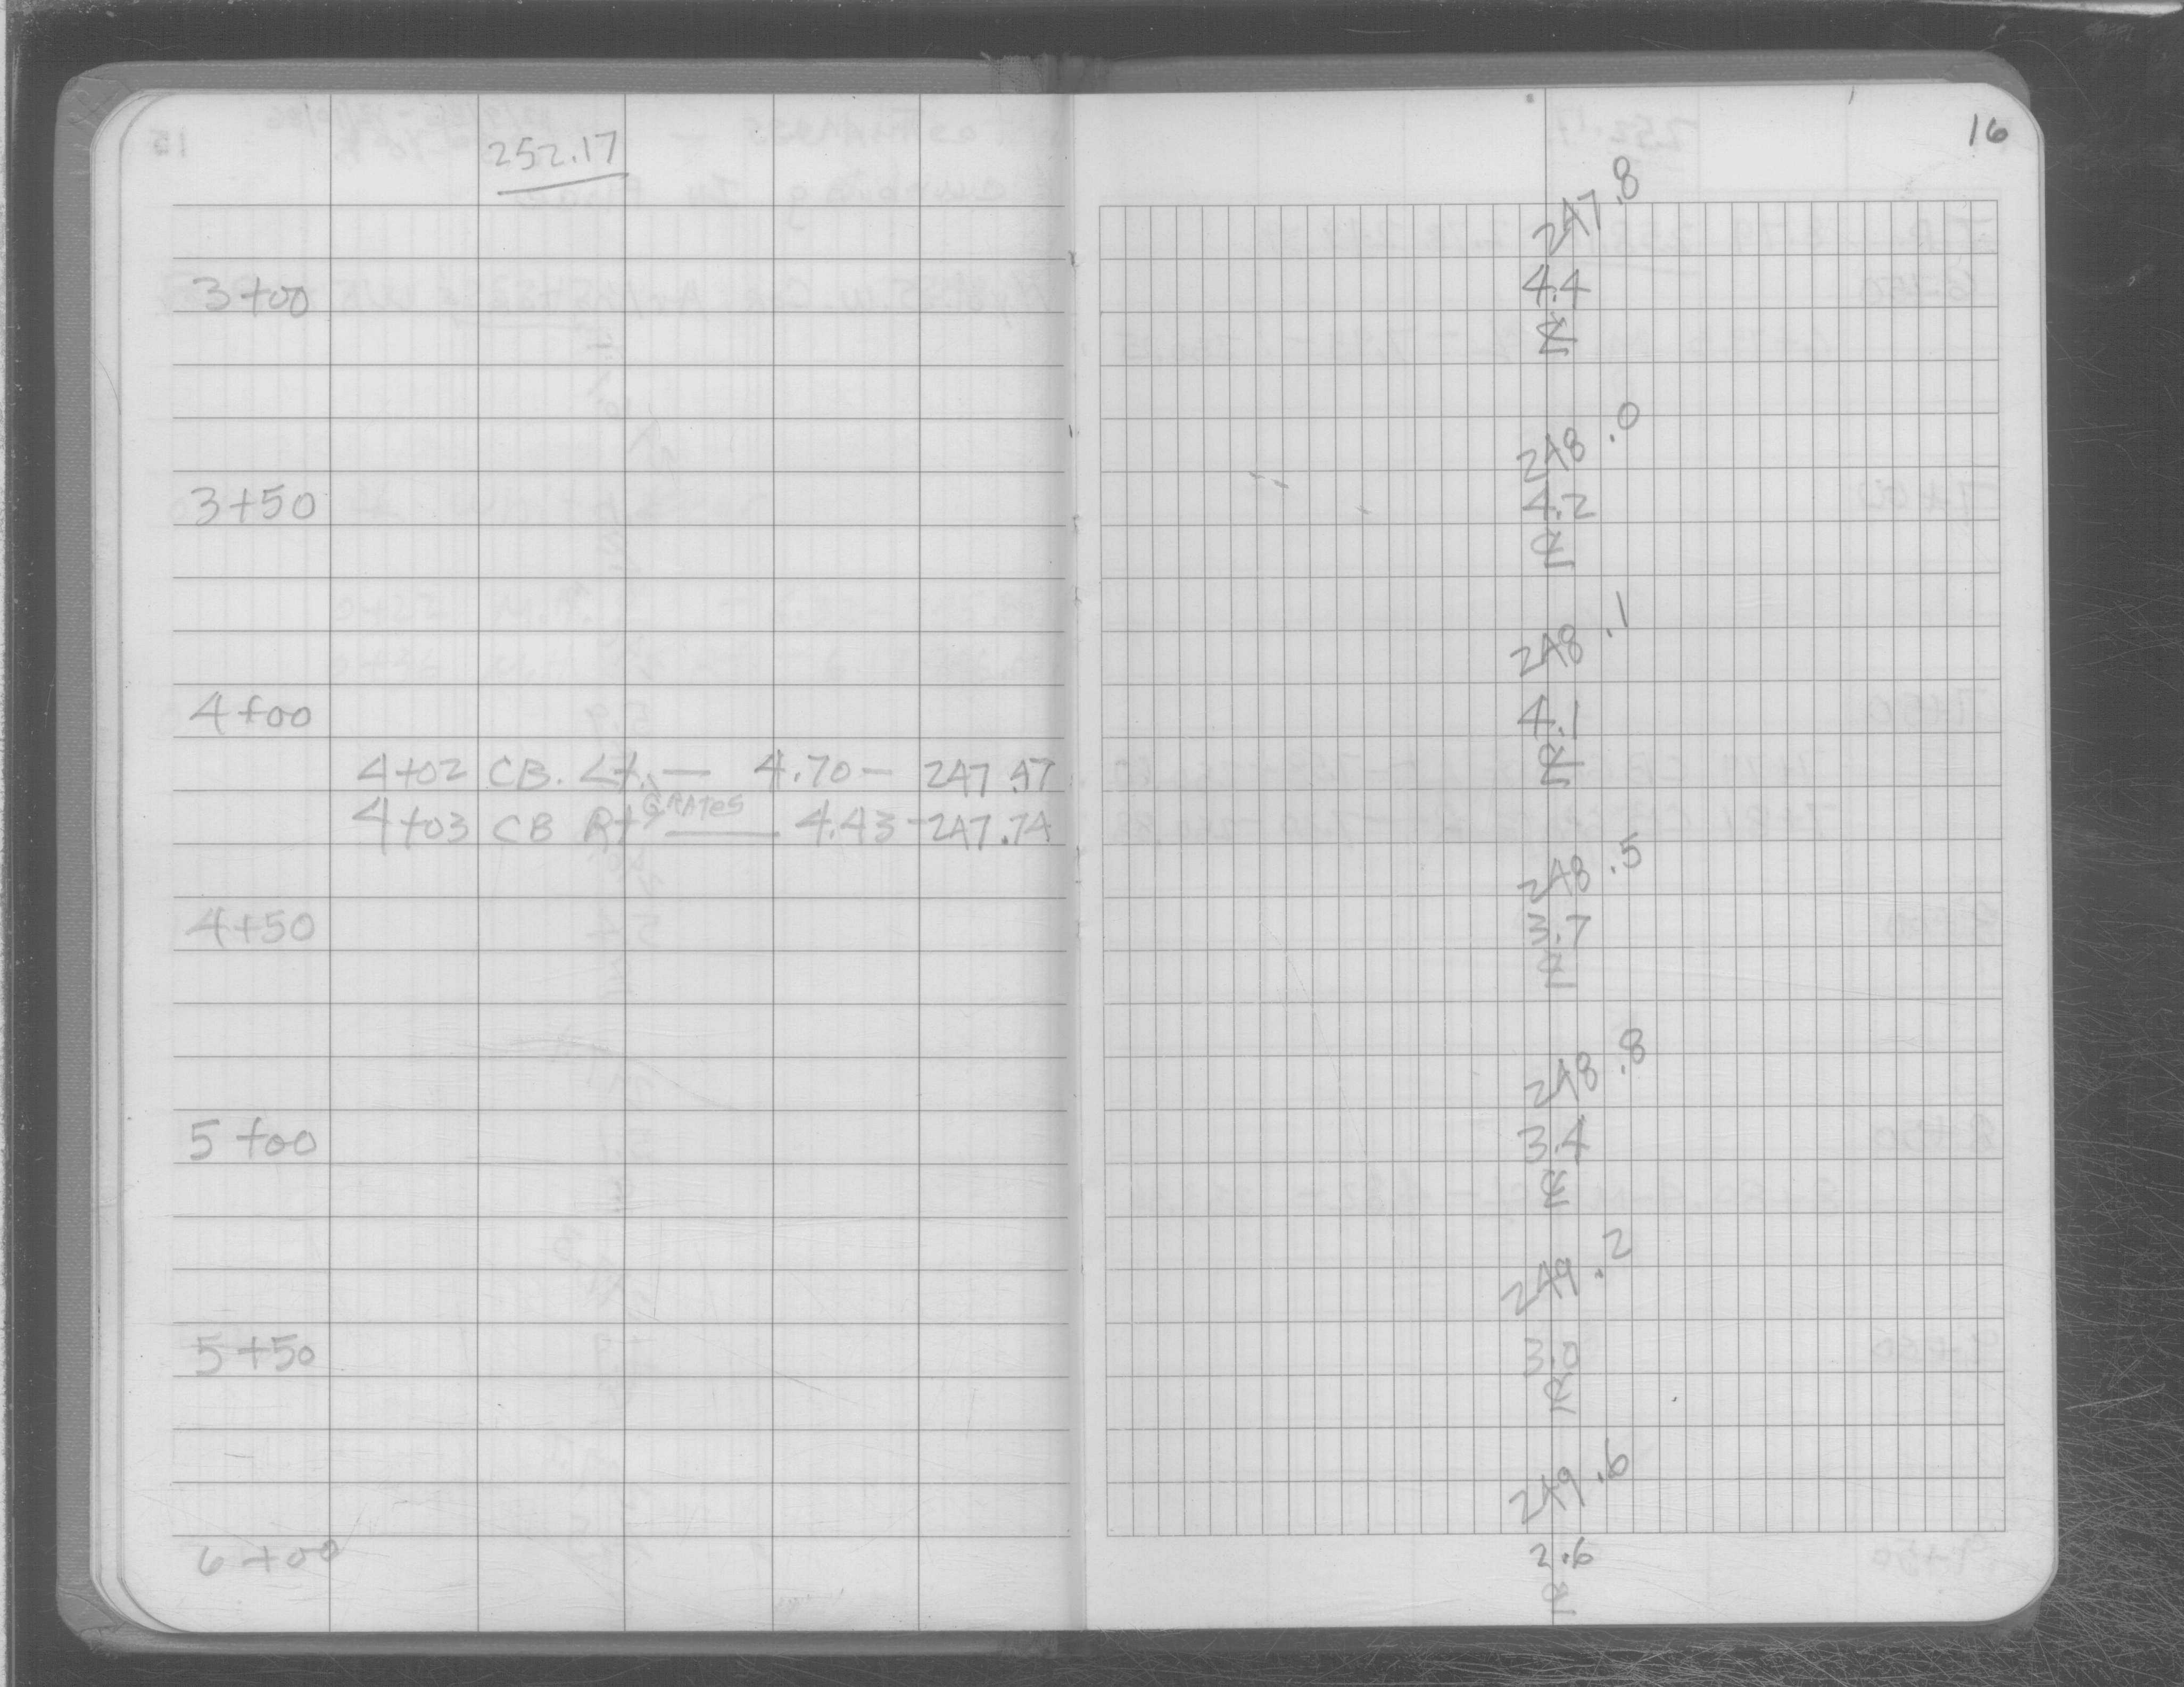 252.17
16
247.8
3+00
4.4
℄
248.0
3+50
4.2
℄
248.1
4+00
4.1
℄
4+02 CB. Lt. — 4.70 — 247.47
GRATES
4+03 CB Rt — 4.43 - 247.74
248.5
4+50
3.7
℄
248.8
5+00
3.4
℄
249.2
5+50
3.0
℄
249.6
6+00
2.6
℄